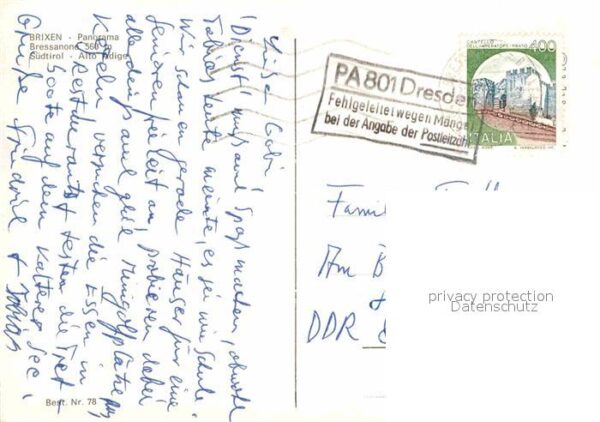 BRIXEN - Panorama
Bressanone 560 m
Südtirol - Alto Adige
Liebe Gabi,
"Dienst" muß auch Spaß machen, obwohl
Tobias heute meinte, es sei wie Schule.
Wir schauen gerade Häuser für eine
an, probieren dabei
allerdings auch
Kegeln, versuchen die Essen in
Restaurants + testen die Tret-
boote auf dem Kalterer See.
Grüße Friedrich + Tobias
Best. Nr. 78
PA 801 Dresden
Fehlgeleitet wegen Mange
bei der Angabe der Postleitzahl
CASTELLO
DELL'IMPERATORE - PRATO
400
ITALIA
Famil
Am B
DDR 8
privacy protection
Datenschutz